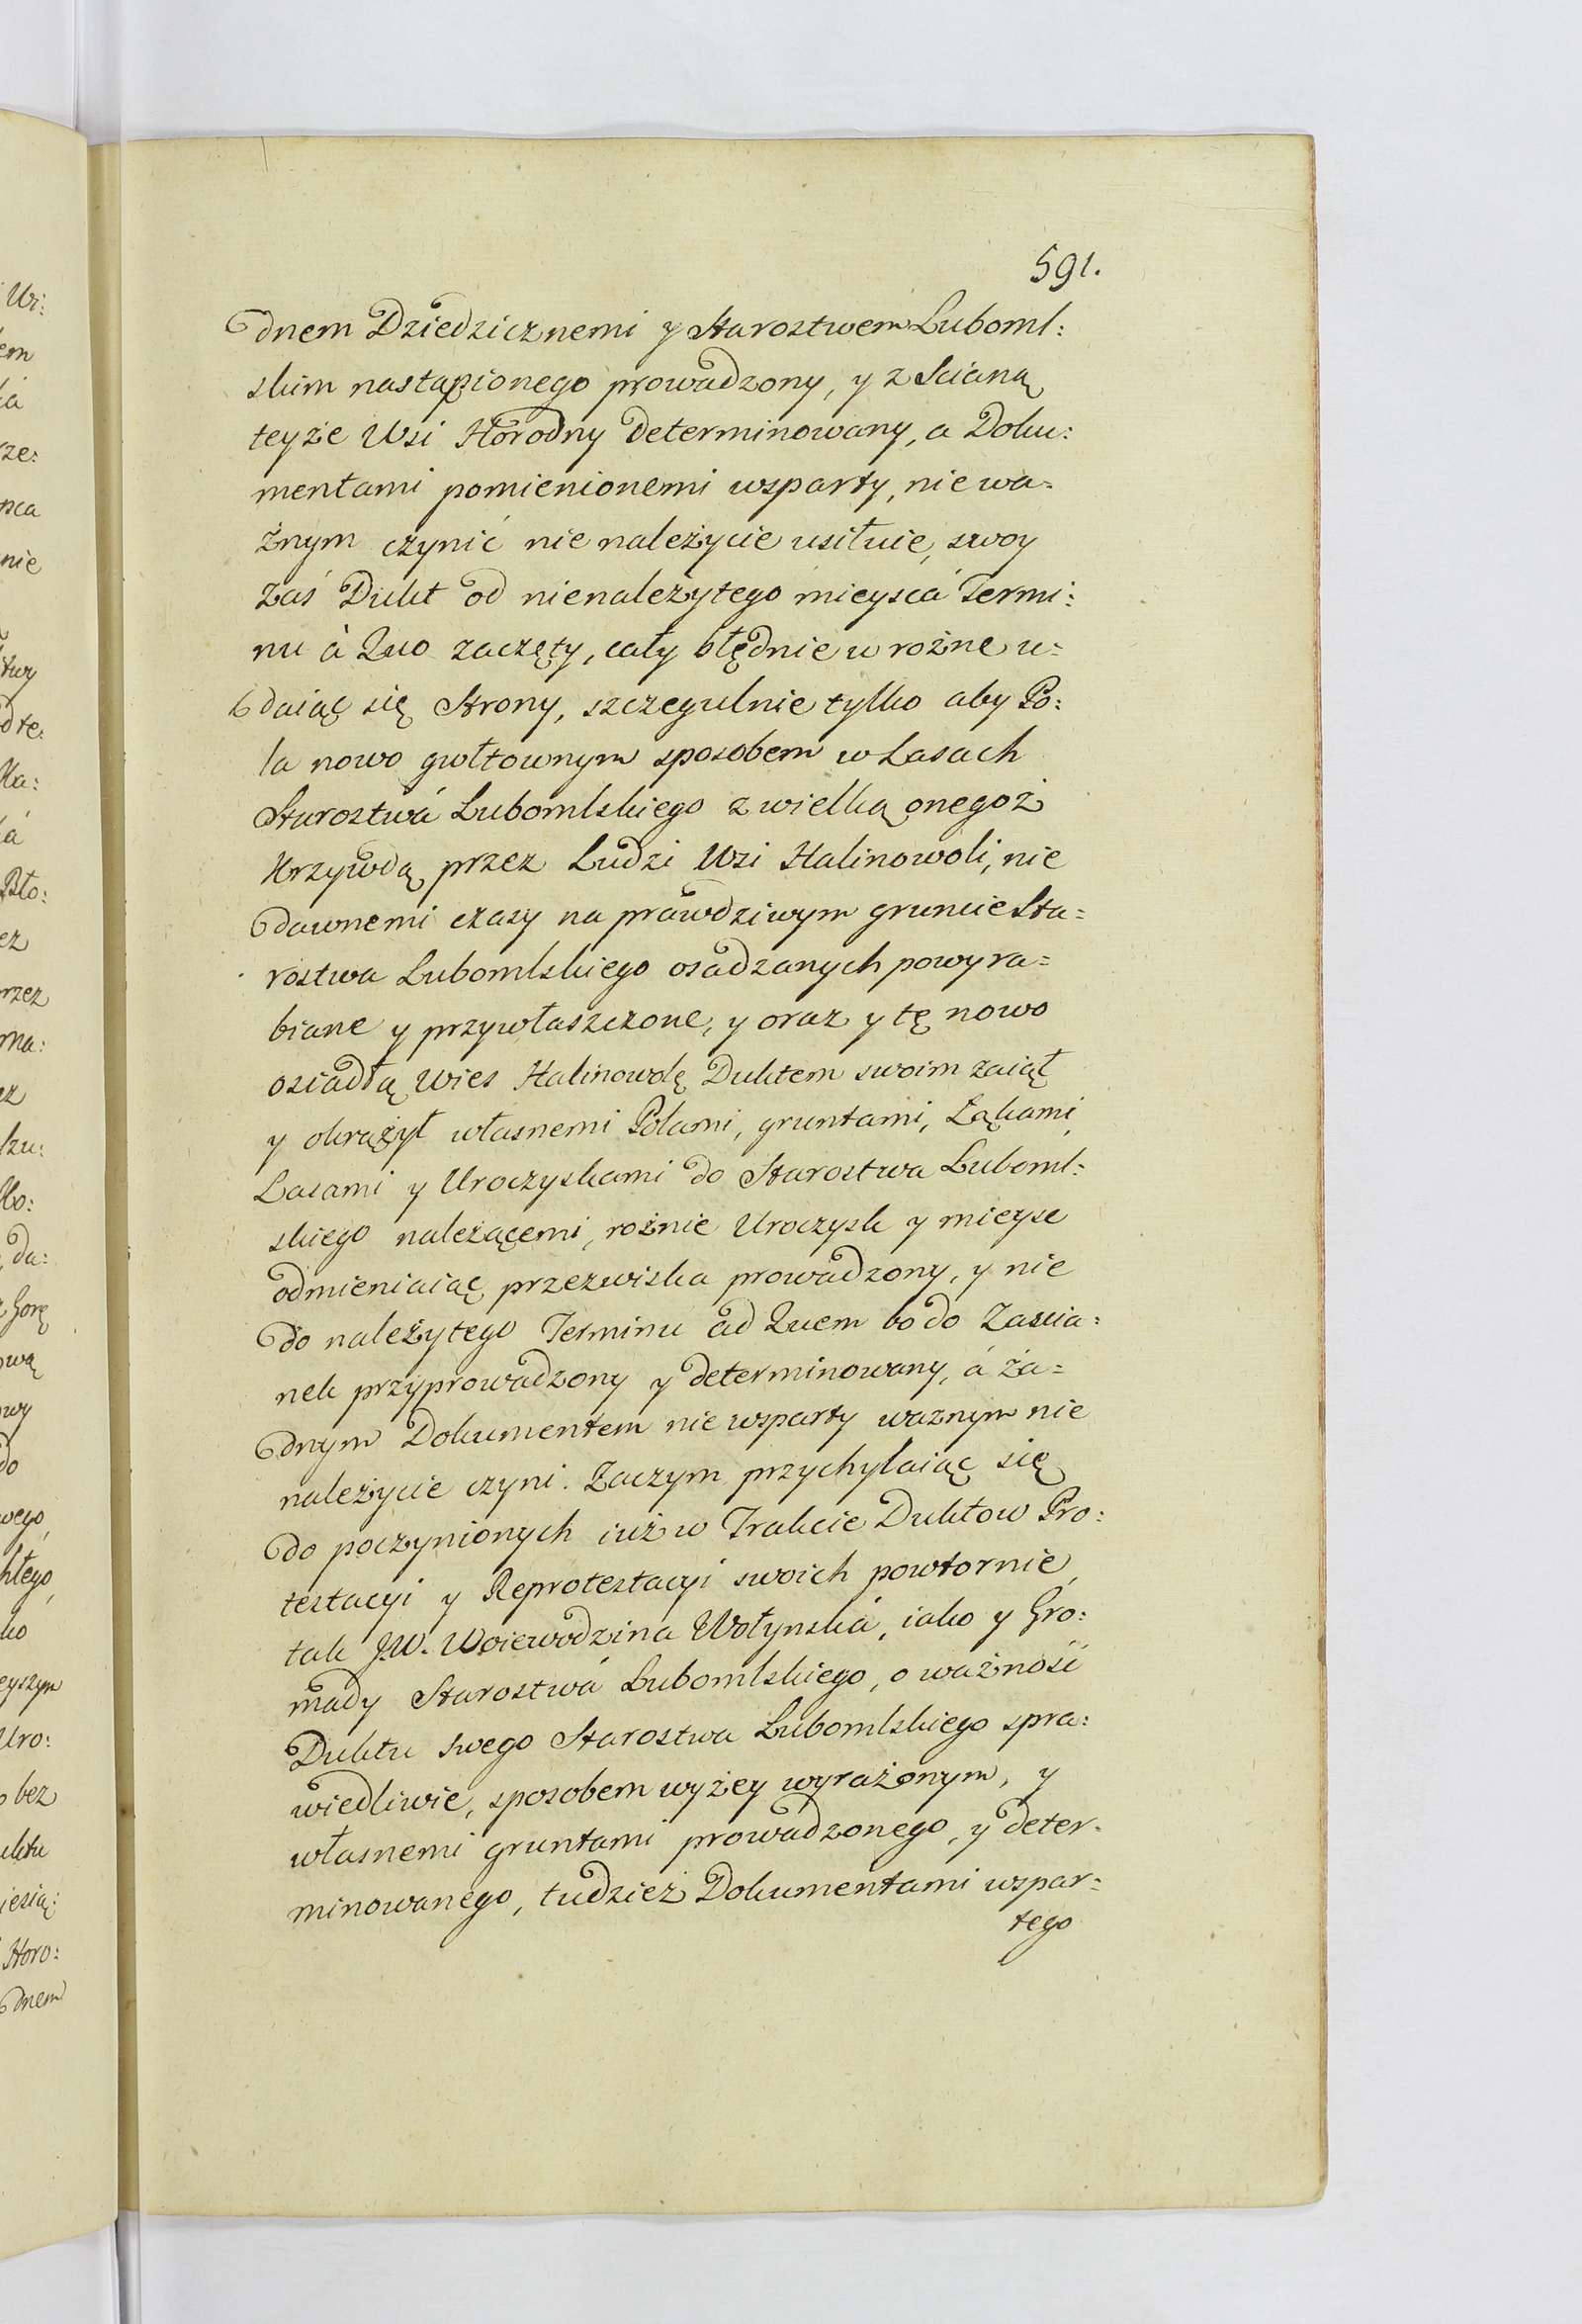 591.
dnem Dziedzicznemi y Starostwem Luboml:
skim nastąpionego prowadzony, y z Scianą
teyże Wsi Horodny determinowany, a Doku:
mentami pomienionemi wsparty, nie wa=
żnym czynić nie należycie usiłuie, swoy
zaś Dukt od nienależytego mieysca Termi:
nu à Quo zaczęty, cały błędnie w rożne u=
daiąc się Strony, szczegulnie tylko aby Po:
la nowo gwłtownym sposobem w Lasach
Starostwá Lubomlskiego z wielką onegoż
Krzywdą przez Ludzi Wsi Halinowoli, nie
dawnemi czasy na prawdziwym gruncie Sta=
rostwa Lubomlskiego osadzanych powyra=
biane y przywłaszczone, y oraz y tę nowo
osiadłą wies Halinowolę Duktem swoim zaiął
y okrążył własnemi Polami, gruntami, Łąkami,
Lasami y Uroczyskami do Starostwa Luboml:
skiego należącemi, rożnie Uroczysk y mieysc
odmieniaiąc przezwiska prowadzony, y nie
do należytego Terminu ad Quem bo do Zascia=
nek przyprowadzony y determinowany, á ża=
dnym Dokumentem nie wsparty ważnym nie
należycie czyni. Zaczym przychylaiąc się
do poczynionych iuż w Trakcie Duktow Pro:
testacyi y Reprotestacyi swoich powtornie,
tak J.W. Woiewodzina Wołynská, iako y Gro:
mady Starostwá Lubomlskiego, o ważność
Duktu swego Starostwa Lubomlskiego spra:
wiedliwie, sposobem wyżey wyrażonym, y
własnemi gruntami prowadzonego, y deter=
minowanego, tudzież Dokumentami wspar=
tego